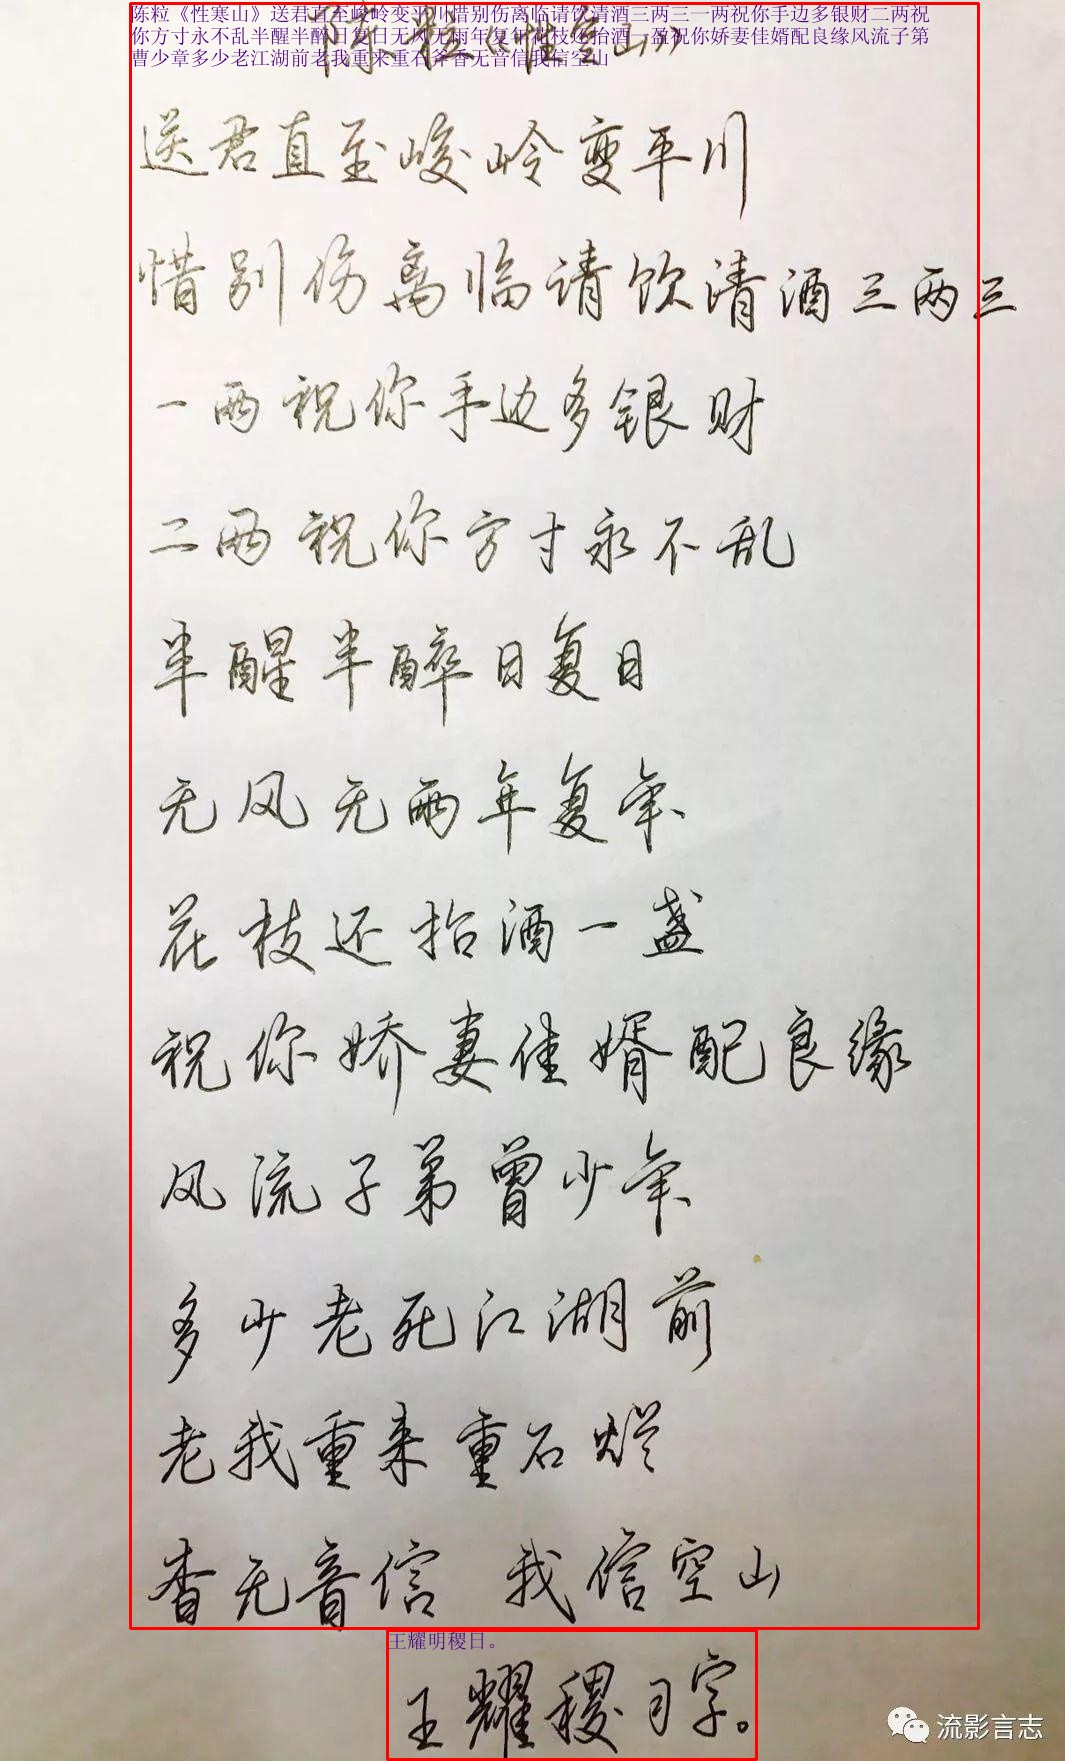 陈粒《性寒山》送君直至峻岭变平川惜别伤离临请饮清酒三两三一两祝你手边多银财二两祝
你方寸永不乱半醒半醉日复日无风无雨年复年花枝还抬酒一盈祝你娇妻佳婿配良缘风流子第
曹少章多少老江湖前老我重来重石斧香无音信我信空山
陈粒《性空山》
送君直至峻岭变平川
惜别伤离临请饮清酒三两三
一两祝你手边多银财
二两祝你方寸永不乱
半醒半醉日复日
无风无雨年复年
花枝还招酒一盏
祝你娇妻佳婿配良缘
风流子弟曾少年
多少老死江湖前
老我重来重石烂
杳无音信 我信空山
王耀明稷日。
王耀稷习字。
流影言志